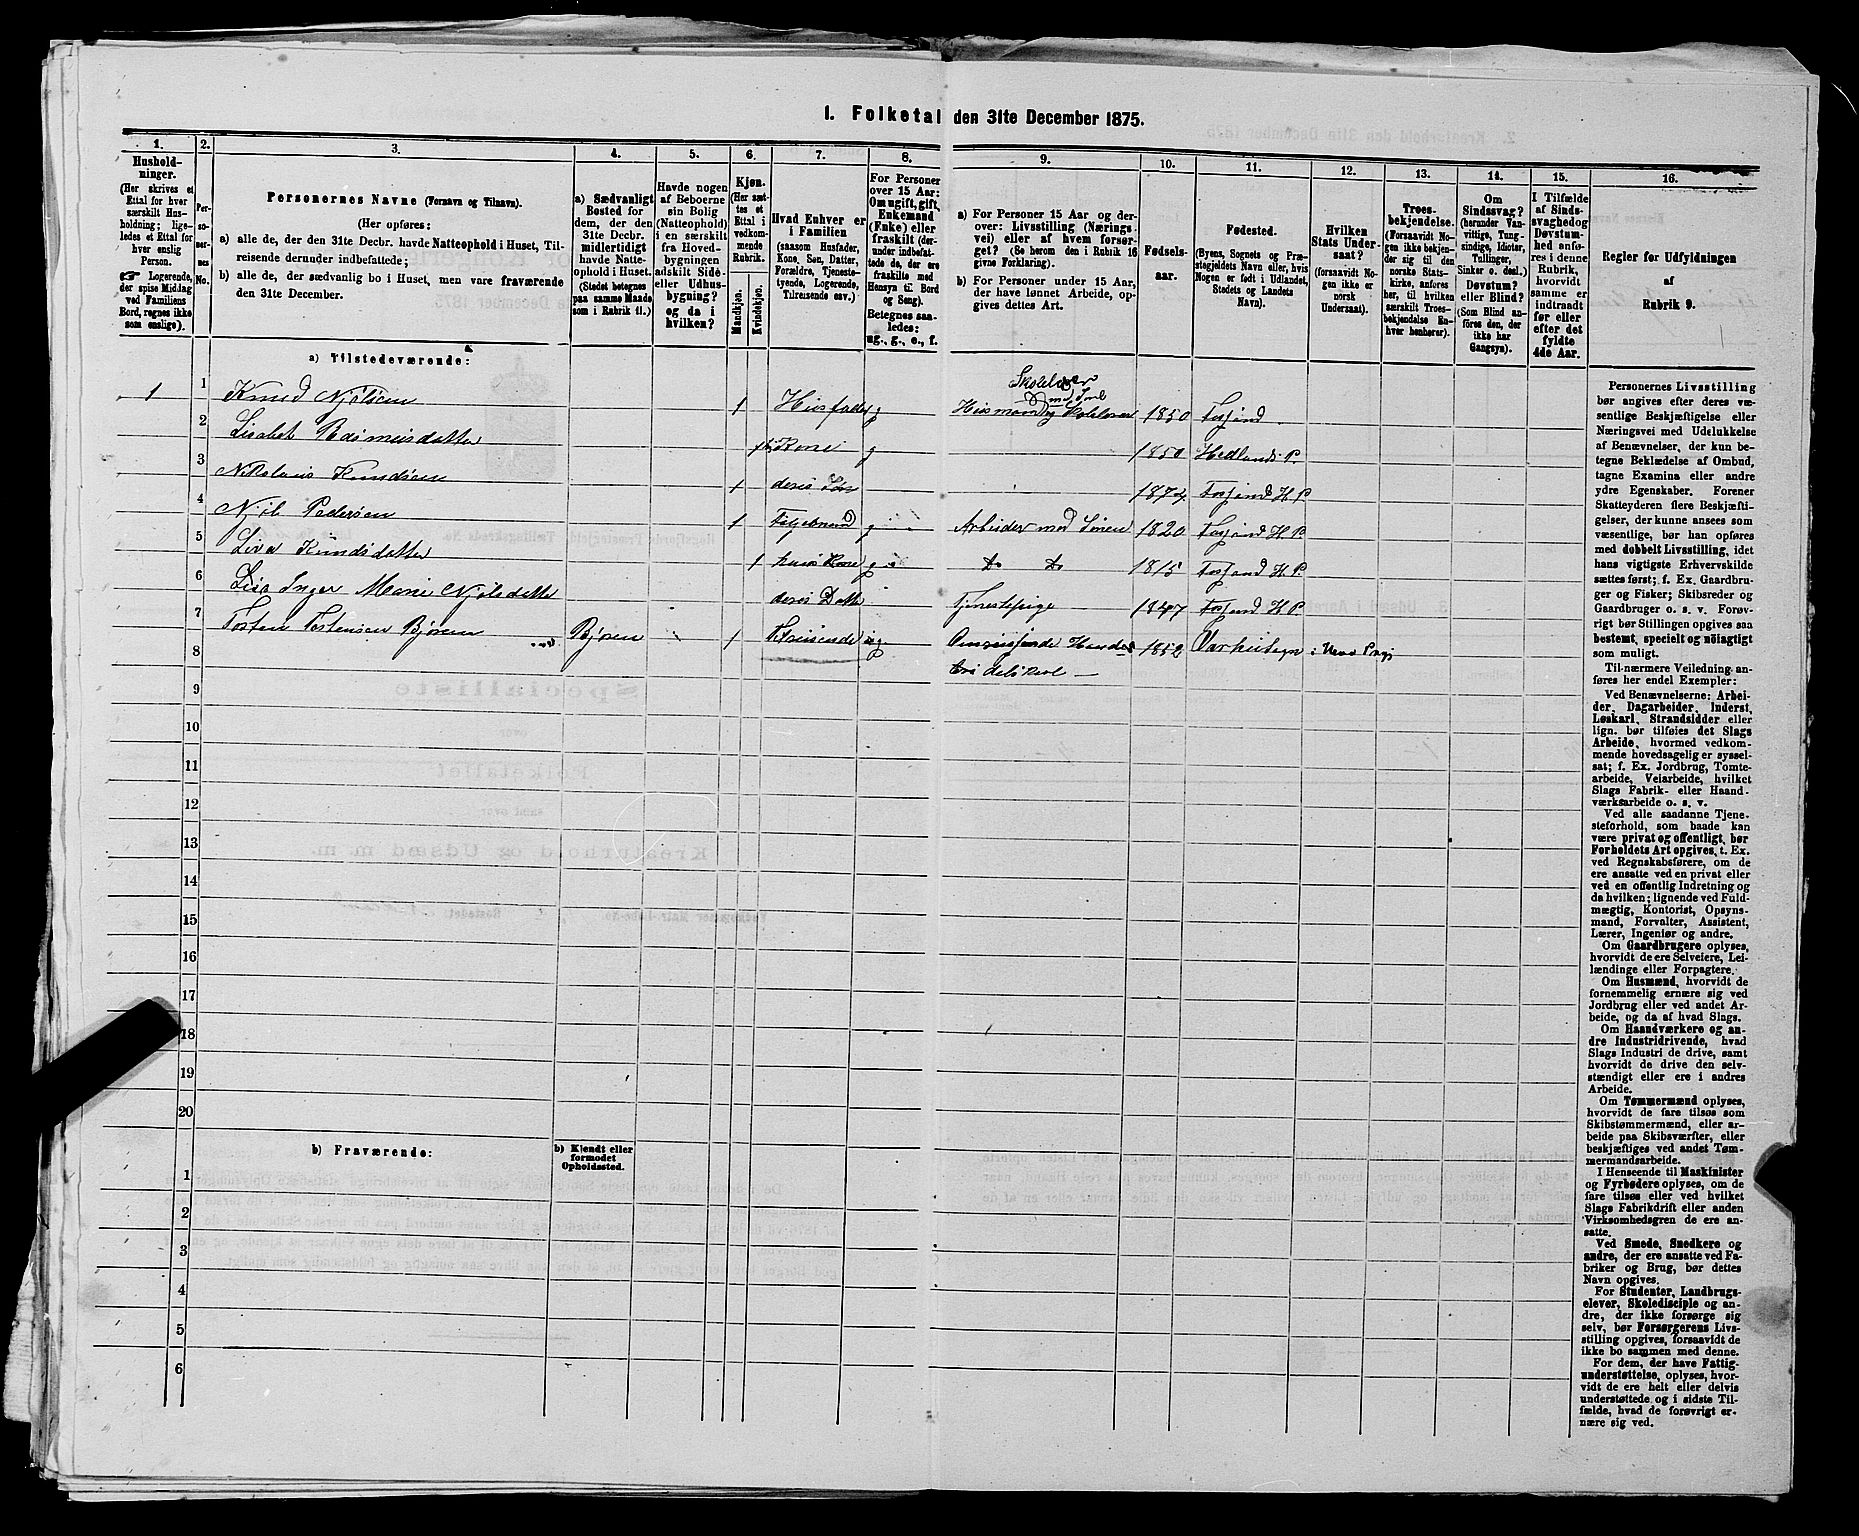 1. Folketal den 31te December 1875.
1. 2. 3. 4. 5. 6. 7. 8. 9. 10. 11. 12. 13. 14. 15. 16.
Hushold-
ninger.
(Her skrives et
Ettal for hver
særskilt Hus-
holdning; lige-
ledes et Ettal for
hver enslig
Person.
☛ Logerende,
der spise Middag
ved Familiens
Bord, regnes ikke
som enslige).
Per-
so-
ner-
nes
No.
Personernes Navne (Fornavn og Tilnavn).
(Her opføres:
a) alle de, der den 31te Decbr. havde Natteophold i Huset, Til-
reisende derunder indbefattede;
b) alle de, der sædvanlig bo i Huset, men vare fraværende
den 31te December.
a) Sædvanligt
Bosted for
dem, der den
31te Decbr.
midlertidigt
havde Natte-
ophold i Huset.
(Stedet betegnes
paa samme Maade
som i Rubrik 11.)
Havde nogen
af Beboerne
sin Bolig
(Natteophold)
i en særskilt
fra Hoved-
bygningen
adskilt Side-
eller Udhus-
bygning?
og da i
hvilken?
Kjøn.
(Her sæt-
tes et
Ettal i
vedkom-
mende
Rubrik.
Mandkjøn.
Kvindekjøn.
Hvad Enhver er
i Familien
(saasom Husfader,
Kone, Søn, Datter,
Forældre, Tjeneste-
tyende, Logerende,
Tilreisende osv.)
For Personer
over 15 Aar:
Om ugift, gift,
Enkemand
(Enke) eller
fraskilt (der-
under indbefat-
tede de, der ere
fraskilte med
Hensyn til Bord
og Seng).
Betegnes saa-
ledes:
ug., g., e., f.
a) For Personer 15 Aar og der-
over: Livsstilling (Nærings-
vei) eller af hvem forsør-
get? (Se herom den i Rubrik 16
givne Forklaring).
b) For Personer under 15 Aar,
der have lønnet Arbeide, op-
gives dettes Art.
Fødsels-
aar.
Fødested.
(Byens, Sognets og Præ-
stegjeldets Navn eller, hvis
Nogen er født i Udlandet,
Stedets og Landets
Navn).
Hvilken
Stats Under-
saat?
(forsaavidt No-
gen ikke er
norsk
Undersaat).
Troes-
bekjendelse.
(Forsaavidt No-
gen ikke bekjen-
der sig til den
norske Stats-
kirke, anføres
her, til hvilken
særskilt Troes-
bekjendelse En-
hver henhører).
Om
Sindssvag?
(herunder Van-
vittige, Tung-
sindige, Idioter,
Tullinger,
Sinker o. desl.)
Døvstum?
eller Blind?
(Som Blind an-
føres den, der
ikke har
Gangsyn).
I Tilfælde
af Sinds-
svaghed og
Døvstum-
hed anfø-
res i denne
Rubrik,
hvorvidt
samme er
indtraadt
før eller
efter det
fyldte
4de Aar.
Regler for Udfyldningen
af
Rubrik 9.
a) Tilstedeværende:
1 1 Knud Njølsen 1 Husfader g Husmand og Skolelærer 1850 Fosjord
Skolelærer
2 Lisabet Rasmusdatter Kone g 1850 Hedlands P.
3 Nikolaus Knudsen 1 deres Søn 1874 Fosjord H P.
4 Njøl Pedersen 1 g Arbeider med Sønen 1820 Fosjord H P
5 Siva Knudsdatter 1 hans Kone g Do Do 1815 Fosjord H P.
6 Lise Inger Marie Njølsdatter deres Datter Tjenestepige 1847 Fosjord H P.
7 Tosten Tostensen Bjøren Bjøren 1 Tilreisende ug Omreisende Handels 1852 Varhusogn
8
9
10
11
12
13
14
15
16
17
18
19
20
b) Fraværende:
b) Kjendt eller
formodet
Opholdssted.
1
2
3
4
5
6
Personernes Livsstilling
bør angives efter deres væ-
sentlige Beskjæftigelse eller
Næringsvei med Udelukkelse
af Benævnelser, der kun be-
tegne Beklædelse af Ombud,
tagne Examina eller andre
ydre Egenskaber. Forener
Skatteyderen flere Beskjæfti-
gelser, der kunne ansees som
væsentlige, bør han opføres
med dobbelt Livsstilling, idet
hans vigtigste Erhvervskilde
sættes først; f. Ex. Gaardbru-
ger og Fisker; Skibsreder og
Gaardbruger o. s. v. Forøv-
rigt bør Stillingen opgives saa
bestemt, specielt og nöiagtigt
som muligt.
Til nærmere Veiledning an-
føres her endel Exempler:
Ved Benævnelserne: Arbei-
der, Dagarbeider, Inderst,
Løskarl, Strandsidder eller
lign. bør tilføies det Slags
Arbeide, hvormed vedkom-
mende hovedsagelig er syssel-
sat; f. Ex. Jordbrug, Tomte-
arbeide, Veiarbeide, hvilket
Slags Fabrik- eller Haand-
værksarbeide o. s. v.
Ved alle saadanne Tjene-
steforhold, som baade kan
være privat og offentligt, bør
Forholdets Art opgives, t. Ex.
ved Regnskabsførere, om de
ere ansatte ved en privat eller
ved en offentlig Indretning og
da hvilken; lignende ved Fuld-
mægtig, Kontorist, Opsyns-
mand, Forvalter, Assistent,
Lærer, Ingeniør og andre.
Om Gaardbrugere oplyses,
hvorvidt de ere Selveiere, Lei-
lændinge eller Forpagtere.
Om Husmænd, hvorvidt de
fornemmelig ernære sig ved
Jordbrug eller ved andet Ar-
beide, og da af hvad Slags.
Om Haandværkere og an-
dre Industridrivende, hvad
Slags Industri de drive, samt
hvorvidt de drive den selv-
stændigt eller ere i andres
Arbeide.
Om Tømmermænd oplyses,
hvorvidt de fare tilsøs som
Skibstømmermænd, eller ar-
beide paa Skibsværfter, eller
beskjæftiges ved andet Tøm-
mermandsarbeide.
I Henseende til Maskinister
og Fyrbødere oplyses, om de
fare tilsøs eller ved hvilket
Slags Fabrikdrift eller anden
Virksomhedsgren de ere an-
satte.
Ved Smede, Snedkere og
andre, der ere ansatte ved Fa-
briker og Brug, bør dettes
Navn opgives.
For Studenter, Landbrugs-
elever, Skoledisciple og an-
dre, der ikke forsørge sig
selv, bør Forsørgerens Livs-
stilling opgives, forsaavidt de
ikke bo sammen med denne.
For dem, der have Fattig-
understøttelse, oplyses, hvor-
vidt de ere helt eller delvis
understøttede og i sidste Til-
fælde, hvad de forøvrigt er-
nære sig ved.